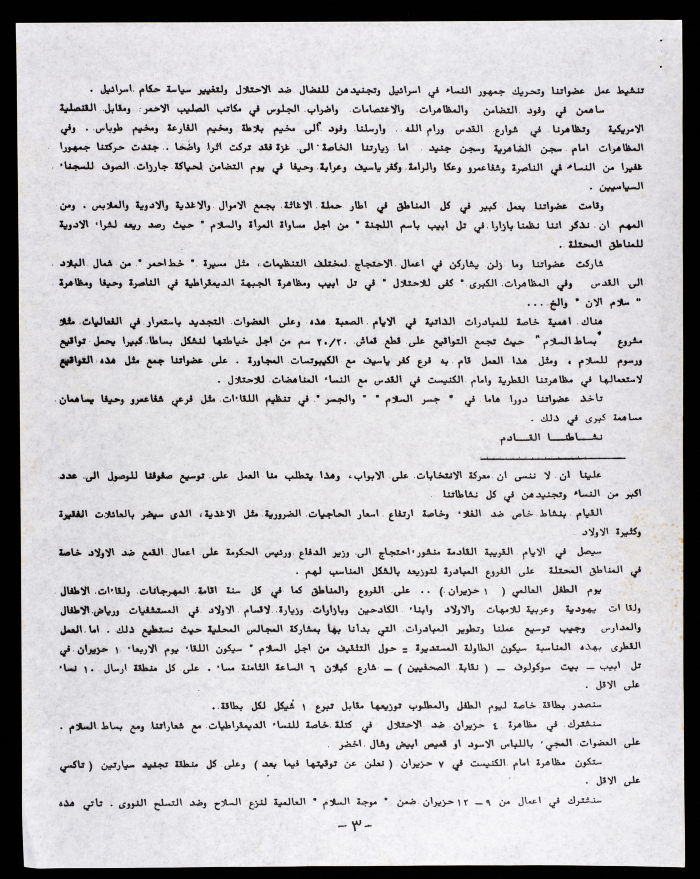 تنشيط عمل عضواتنا وتحريك جمهور النساء في اسرائيل وتجنيدهن للنضال ضد الاحتلال ولتغيير سياسة حكام اسرائيل .
ساهمن في وفود التضامن والمظاهرات والاعتصامات واضراب الجلوس في مكاتب الصليب الاحمر ومقابل القنصلية
الامريكية وتظاهرنا في شوارع القدس ورام الله .. وارسلنا وفود الى مخيم بلاطة ومخيم الفارعة ومخيم طوباس . وفي
المظاهرات امام سجن الضاهرية وسجن جنيد . اما زيارتنا الخاصة الى غزة فقد تركت اثرا واضحا .. جندت حركتنا جمهورا
غفيرا من النساء في الناصرة وشفاعمرو وعكا والرامة وكفر ياسيف وعرابة وحيفا في يوم التضامن لحياكة جارزات الصوف للسجناء
السياسيين .
وقامت عضواتنا بعمل كبير في كل المناطق في اطار حملة الاغاثة بجمع الاموال والاغذية والادوية والملابس . ومن
المهم ان نذكر اننا نظمنا بازارا في تل ابيب باسم اللجنة " من اجل مساواة المرأة والسلام " حيث رصد ريعه لشراء الادوية
للمناطق المحتلة .
شاركت عضواتنا وما زلن يشاركن في اعمال الاحتجاج لمختلف التنظيمات، مثل مسيرة " خط احمر " من شمال البلاد
الى القدس وفي المظاهرات الكبرى " كفى للاحتلال " في تل ابيب ومظاهرة الجبهة الديمقراطية في الناصرة وحيفا ومظاهرة
" سلام الان " والخ ...
هناك اهمية خاصة للمبادرات الذاتية في الايام الصعبة هذه وعلى العضوات التجديد باستمرار في الفعاليات مثلا
مشروع "بساط السلام" حيث تجمع التواقيع على قطع قماش ٣٠/٢٠ سم من اجل خياطتها لتشكل بساطا كبيرا يحمل تواقيع
ورسوم للسلام ، ومثل هذا العمل قام به فرع كفر ياسيف مع الكيبوتسات المجاورة . على عضواتنا جمع مثل هذه التواقيع
لاستعمالها في مظاهرتنا القطرية وامام الكنيست في القدس مع النساء المناهضات للاحتلال .
تأخذ عضواتنا دورا هاما في " جسر السلام " " والجسر " في تنظيم اللقاءات مثل فرعي شفاعمرو وحيفا يساهمان
مساهمة كبرى في ذلك .
نشاطنا القادم
علينا ان لا ننسى ان معركة الانتخابات على الابواب، وهذا يتطلب منا العمل على توسيع صفوفنا للوصول الى عدد
اكبر من النساء وتجنيدهن في كل نشاطاتنا
القيام بنشاط خاص ضد الغلاء وخاصة ارتفاع اسعار الحاجيات الضرورية مثل الاغذية، الذى سيضر بالعائلات الفقيرة
وكثيرة الاولاد
سيصل في الايام القريبة القادمة منشور احتجاج الى وزير الدفاع ورئيس الحكومة على اعمال القمع ضد الاولاد خاصة
في المناطق المحتلة على الفروع المبادرة لتوزيعه بالشكل المناسب لهم .
يوم الطفل العالمي ( ١ حزيران ) .. على الفروع والمناطق كما في كل سنة اقامة المهرجانات ولقاءات الاطفال
ولقاءات يهودية وعربية للامهات والاولاد وابناء الكادحين وبازارات وزيارة لاقسام الاولاد في المستشفيات ورياض الاطفال
والمدارس وجيب توسيع عملنا وتطوير المبادرات التي بدأنا بها بمشاركة المجالس المحلية حيث نستطيع ذلك . اما العمل
القطرى بهذه المناسبة سيكون الطاولة المستديرة = حول التثقيف من اجل السلام " سيكون اللقاء يوم الاربعاء ١ حزيران في
تل ابيب – بيت سوكولوف – ( نقابة الصحفيين ) – شارع كبلان ٦ الساعة الثامنة مساء . على كل منطقة ارسال ١٠ نساء
على الاقل .
سنصدر بطاقة خاصة ليوم الطفل والمطلوب توزيعها مقابل تبرع ١ شيكل لكل بطاقة ..
سنشترك في مظاهرة ٤ حزيران ضد الاحتلال في كتلة خاصة للنساء الديمقراطيات مع شعاراتنا ومع بساط السلام .
على العضوات المجيء باللباس الاسود او قميص ابيض وشال اخضر
ستكون مظاهرة امام الكنيست في ٧ حزيران ( نعلن عن توقيتها فيما بعد ) وعلى كل منطقة تجنيد سيارتين ( تاكسي
على الاقل .
سنشترك في اعمال من ٩ – ١٢ حزيران ضمن " موجة السلام " العالمية لنزع السلاح وضد التسلح النووى . تأتي هذه
– ٣ –